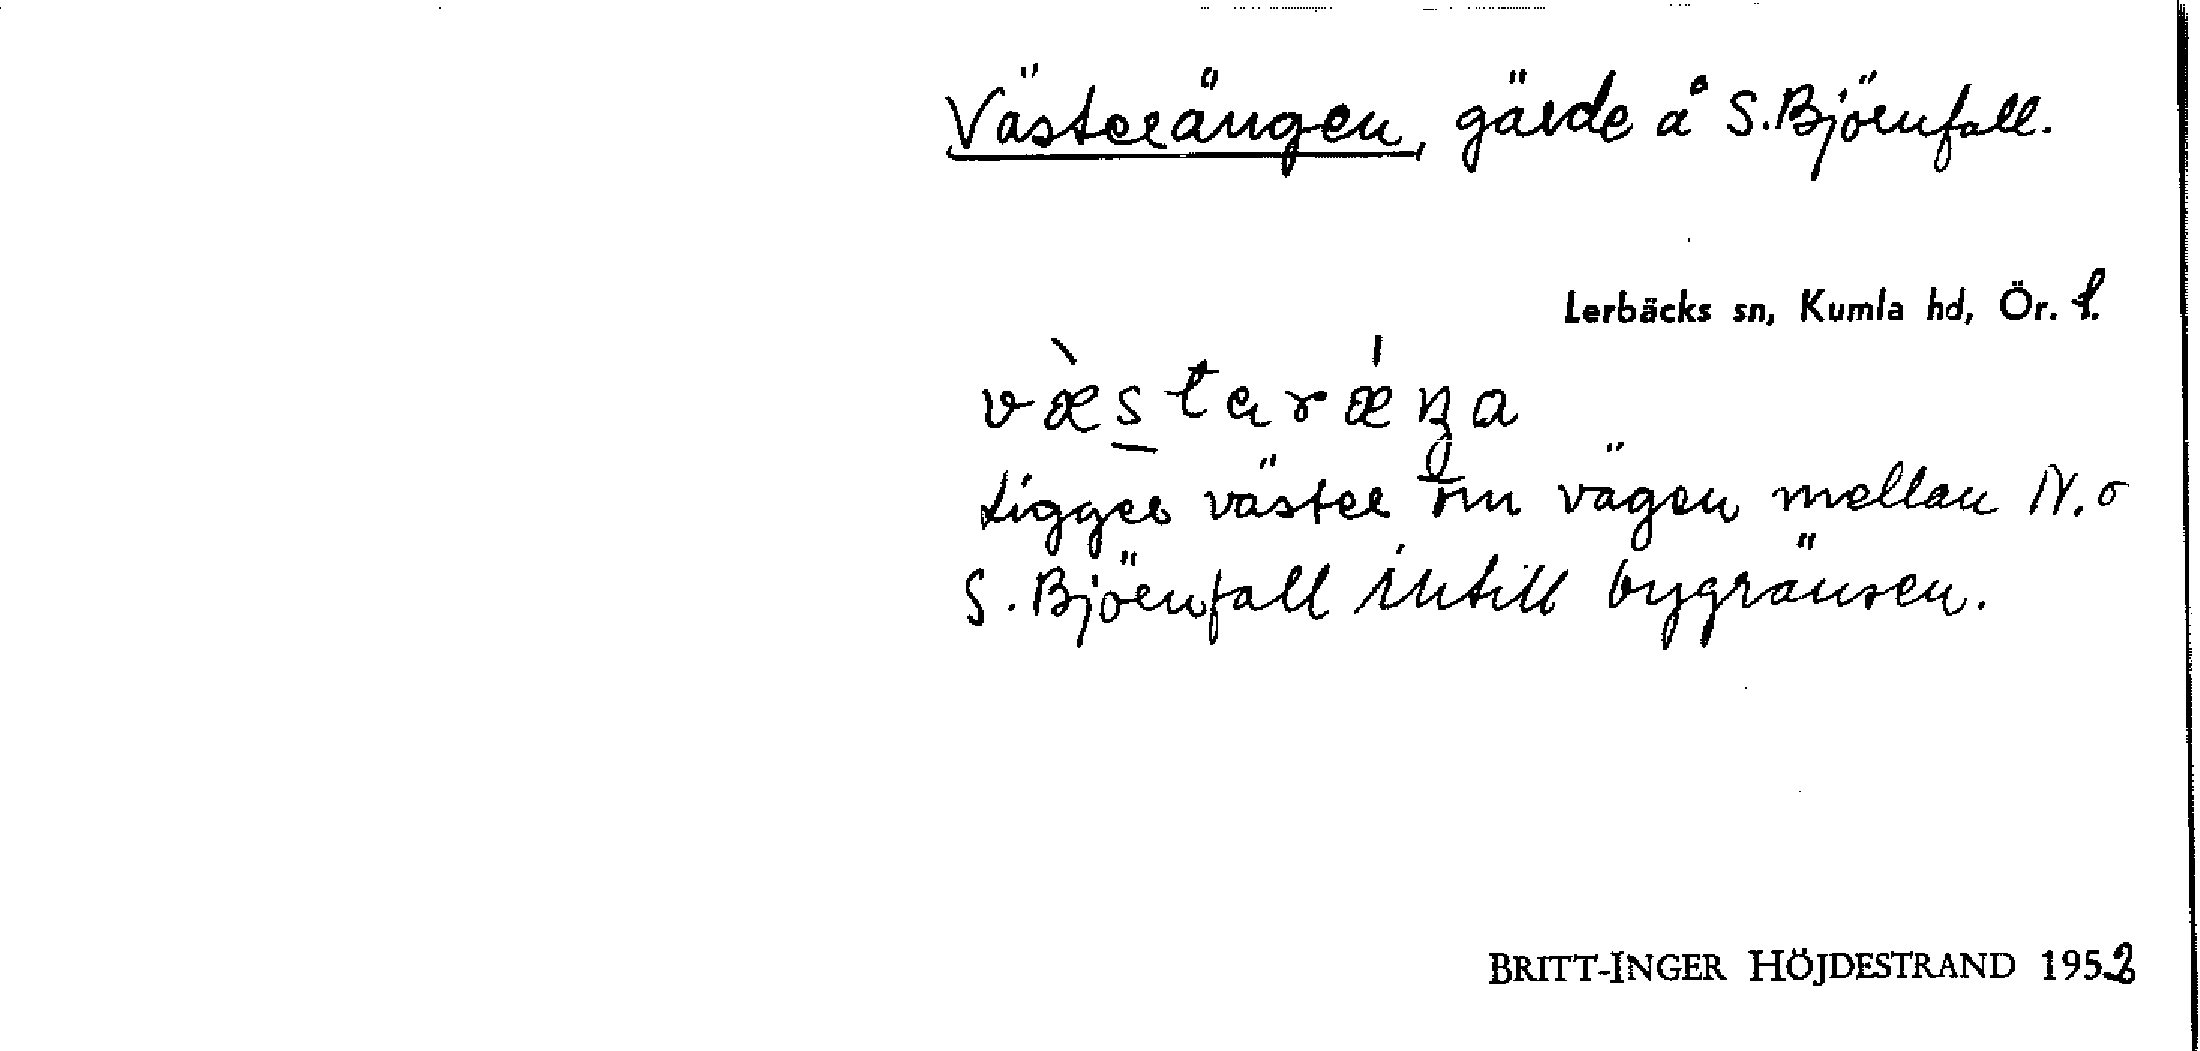 Västerängen, gärde å S. Björnfall.
Lerbäcks sn, Kumla hd, Ör. l.
væ̀starǽŋa
Ligger väster om vägen mellan N. o
S. Björnfall intill bygränsen.
BRITT-INGER HÖJDESTRAND 1952